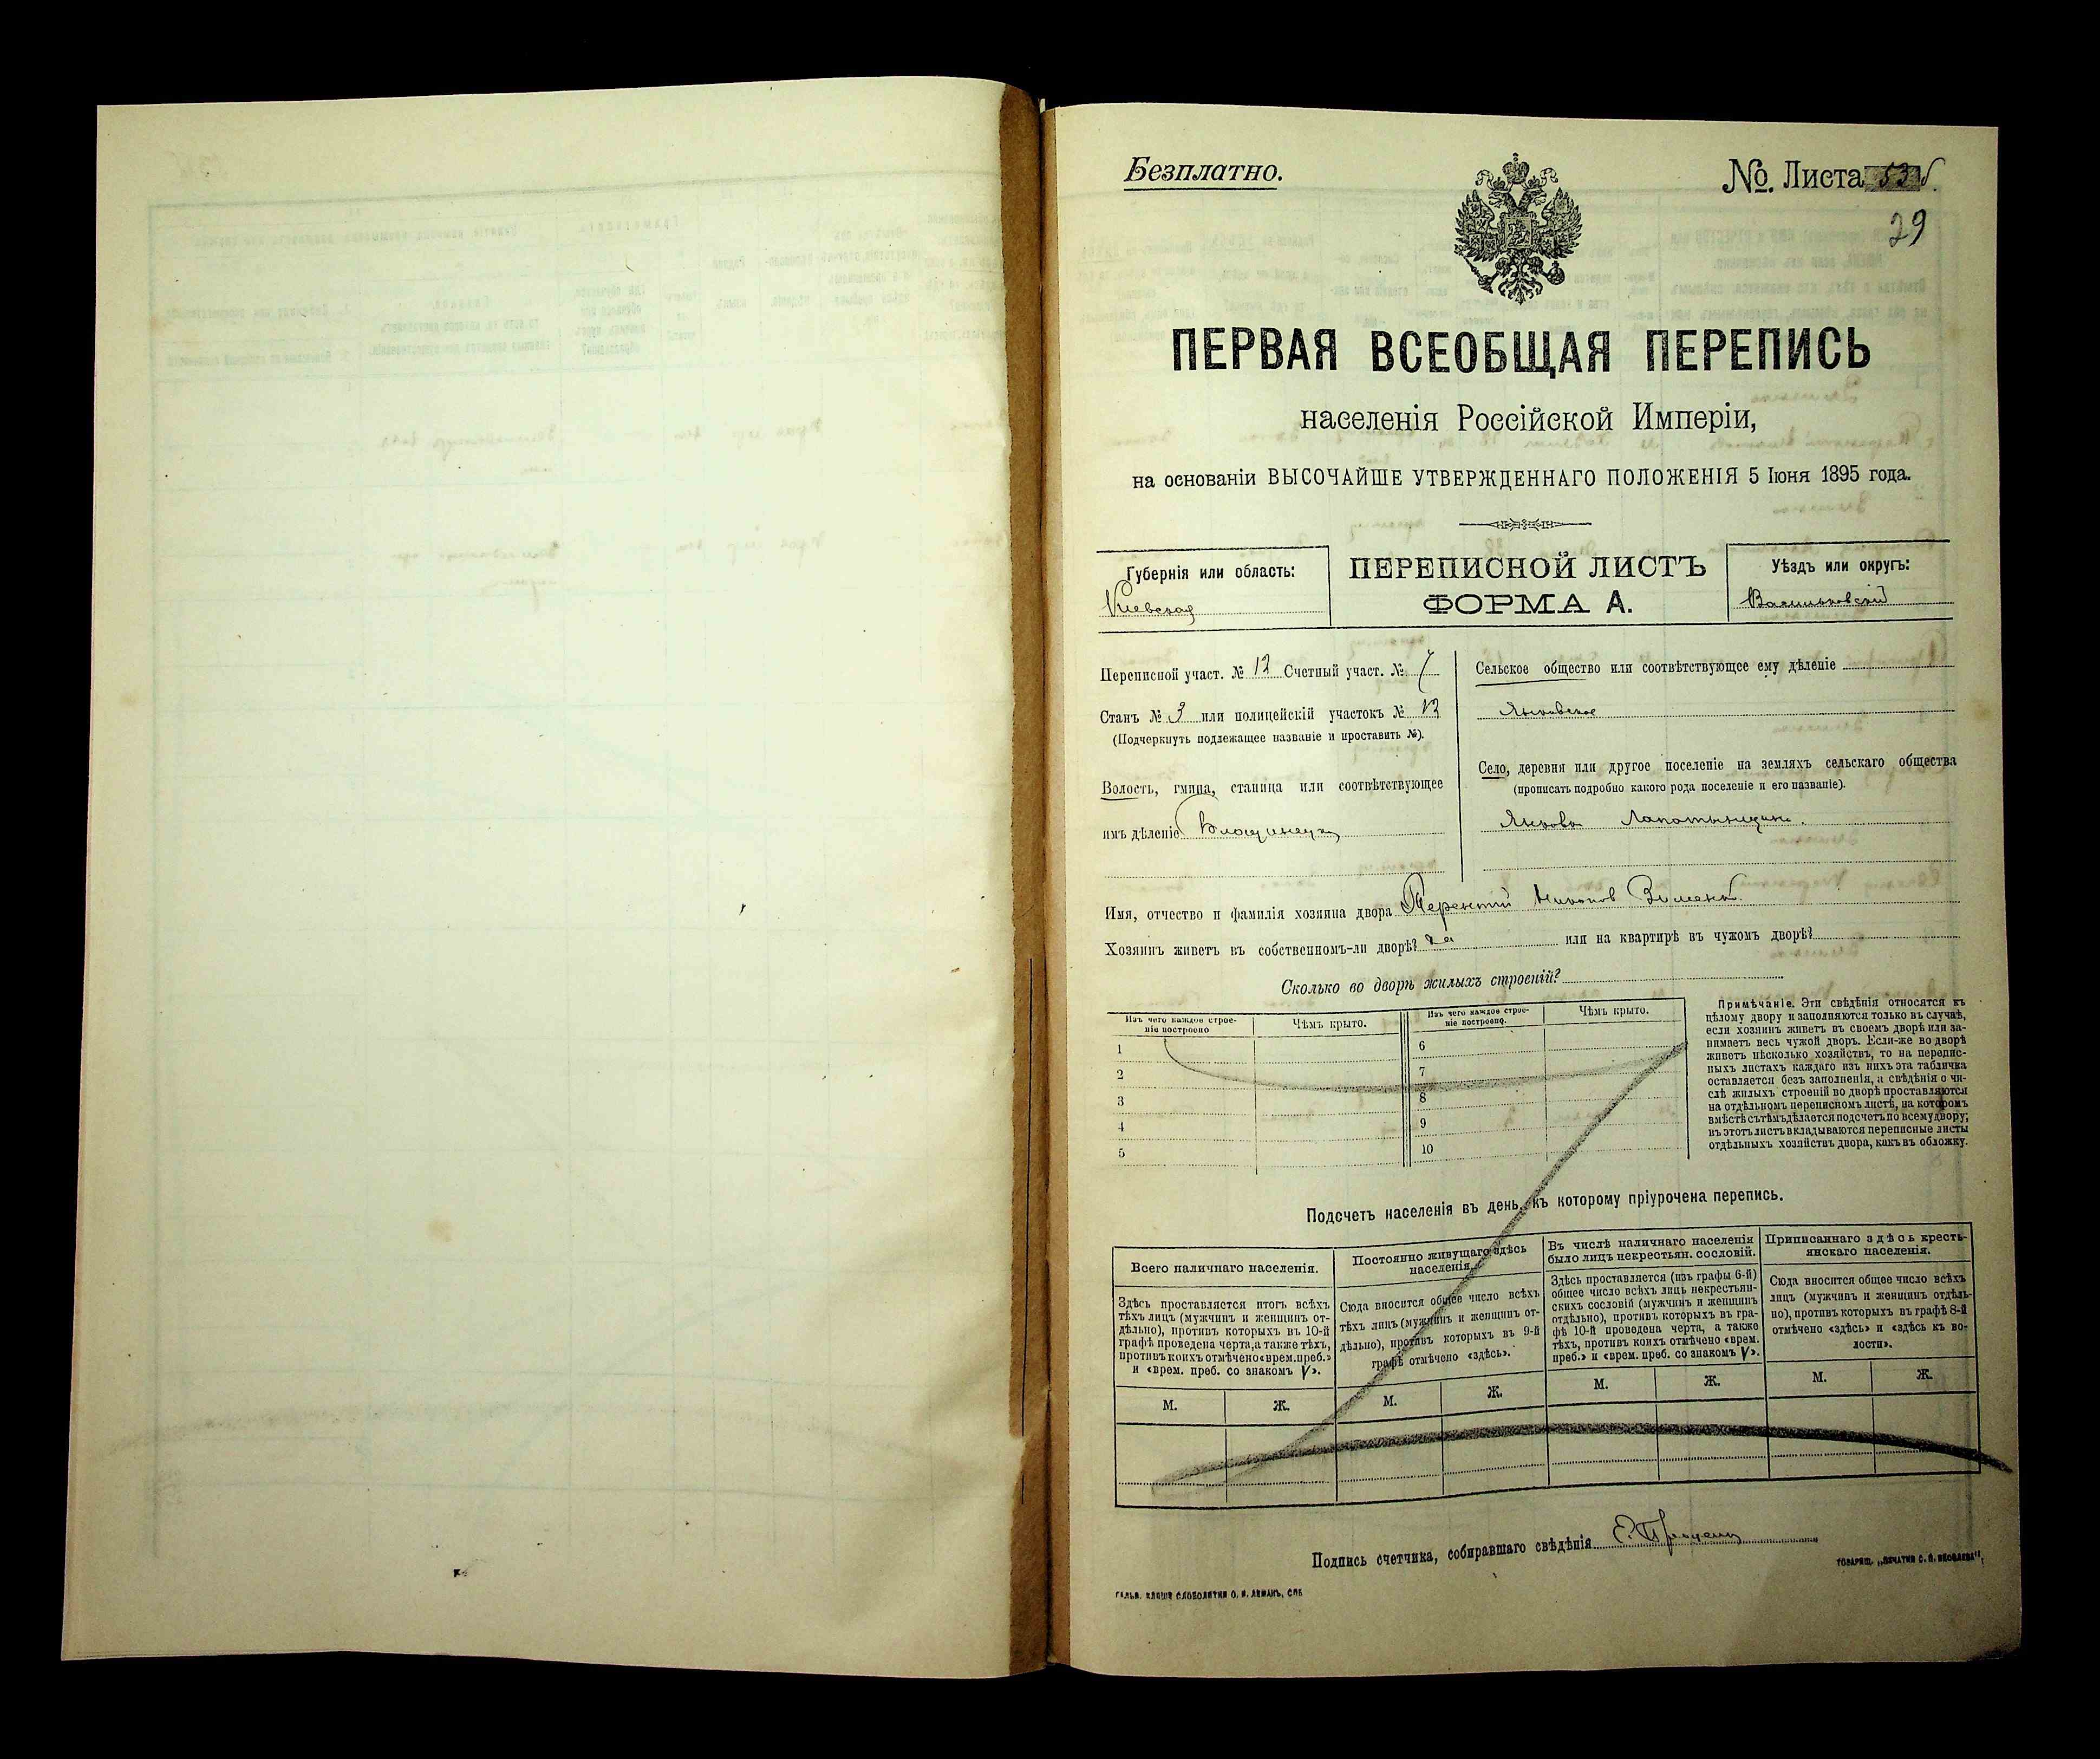 Безплатно.
№. Листа 53б.
29
ПЕРВАЯ ВСЕОБЩАЯ ПЕРЕПИСЬ
населенія Россійской Имперіи,
на основаніи ВЫСОЧАЙШЕ УТВЕРЖДЕННАГО ПОЛОЖЕНІЯ 5 Іюня 1895 года.
Губернія или область:
Киевская
ПЕРЕПИСНОЙ ЛИСТЪ
ФОРМА А.
Уѣздъ или округъ:
Васильковский
Переписной участ. № 12 Счетный участ. № 7
Станъ № 3 или полицейскій участокъ № 12
(Подчеркнуть подлежащее названіе и проставить №).
Волость, гмина, станица или соотвѣтствующее
имъ дѣленіе
Сельское общество или соотвѣтствующее ему дѣленіе
Яньовское
Село, деревня или другое поселеніе на земляхъ сельскаго общества
(прописать подробно какого рода поселеніе и его названіе).
Имя, отчество и фамилія хозяина двора Терентий
Хозяинъ живетъ въ собственномъ-ли дворѣ? да или на квартирѣ въ чужомъ дворѣ?
Сколько во дворѣ жилыхъ строеній?
Изъ чего каждое строе-
ніе построено
Чѣмъ крыто.
Изъ чего каждое строе-
ніе построено.
Чѣмъ крыто.
1
2
3
4
5
6
7
8
9
10
Примѣчаніе. Эти свѣдѣнія относятся къ
цѣлому двору и заполняются только въ случаѣ,
если хозяинъ живетъ въ своемъ дворѣ или за-
нимаетъ весь чужой дворъ. Если-же во дворѣ
живетъ нѣсколько хозяйствъ, то на перепис-
ныхъ листахъ каждаго изъ нихъ эта табличка
оставляется безъ заполненія, а свѣдѣнія о чи-
слѣ жилыхъ строеній во дворѣ проставляются
на отдѣльномъ переписномъ листѣ, на которомъ
вмѣстѣ съ тѣмъ дѣлается подсчетъ по всему двору;
въ этотъ листъ вкладываются переписные листы
отдѣльныхъ хозяйствъ двора, какъ въ обложку.
Подсчетъ населенія въ день, къ которому пріурочена перепись.
Всего наличнаго населенія.
Здѣсь проставляется итогъ всѣхъ
тѣхъ лицъ (мужчинъ и женщинъ от-
дѣльно), противъ которыхъ въ 10-й
графѣ проведена черта, а также тѣхъ,
противъ коихъ отмѣчено «врем. преб.»
и «врем. преб. со знакомъ V».
М. Ж.
Постоянно живущаго здѣсь
населенія.
Сюда вносится общее число всѣхъ
тѣхъ лицъ (мужчинъ и женщинъ от-
дѣльно), противъ которыхъ въ 9-й
графѣ отмѣчено «здѣсь».
М. Ж.
Въ числѣ наличнаго населенія
было лицъ некрестьян. сословій.
Здѣсь проставляется (изъ графы 6-й)
общее число всѣхъ лицъ некрестьян-
скихъ сословій (мужчинъ и женщинъ
отдѣльно), противъ которыхъ въ гра-
фѣ 10-й проведена черта, а также
тѣхъ, противъ коихъ отмѣчено «врем.
преб.» и «врем. преб. со знакомъ V».
М. Ж.
Приписаннаго здѣсь кресть-
янскаго населенія.
Сюда вносится общее число всѣхъ
лицъ (мужчинъ и женщинъ отдѣль-
но), противъ которыхъ въ графѣ 8-й
отмѣчено «здѣсь» и «здѣсь къ во-
лости».
М. Ж.
Подпись счетчика, собиравшаго свѣдѣнія
ТОВАРИЩ. „ПЕЧАТНЯ С. П. ЯКОВЛЕВА".
ГАЛЬВ. КЛИШЕ СЛОВОЛИТНИ О. И. ЛЕМАНЪ, СПБ